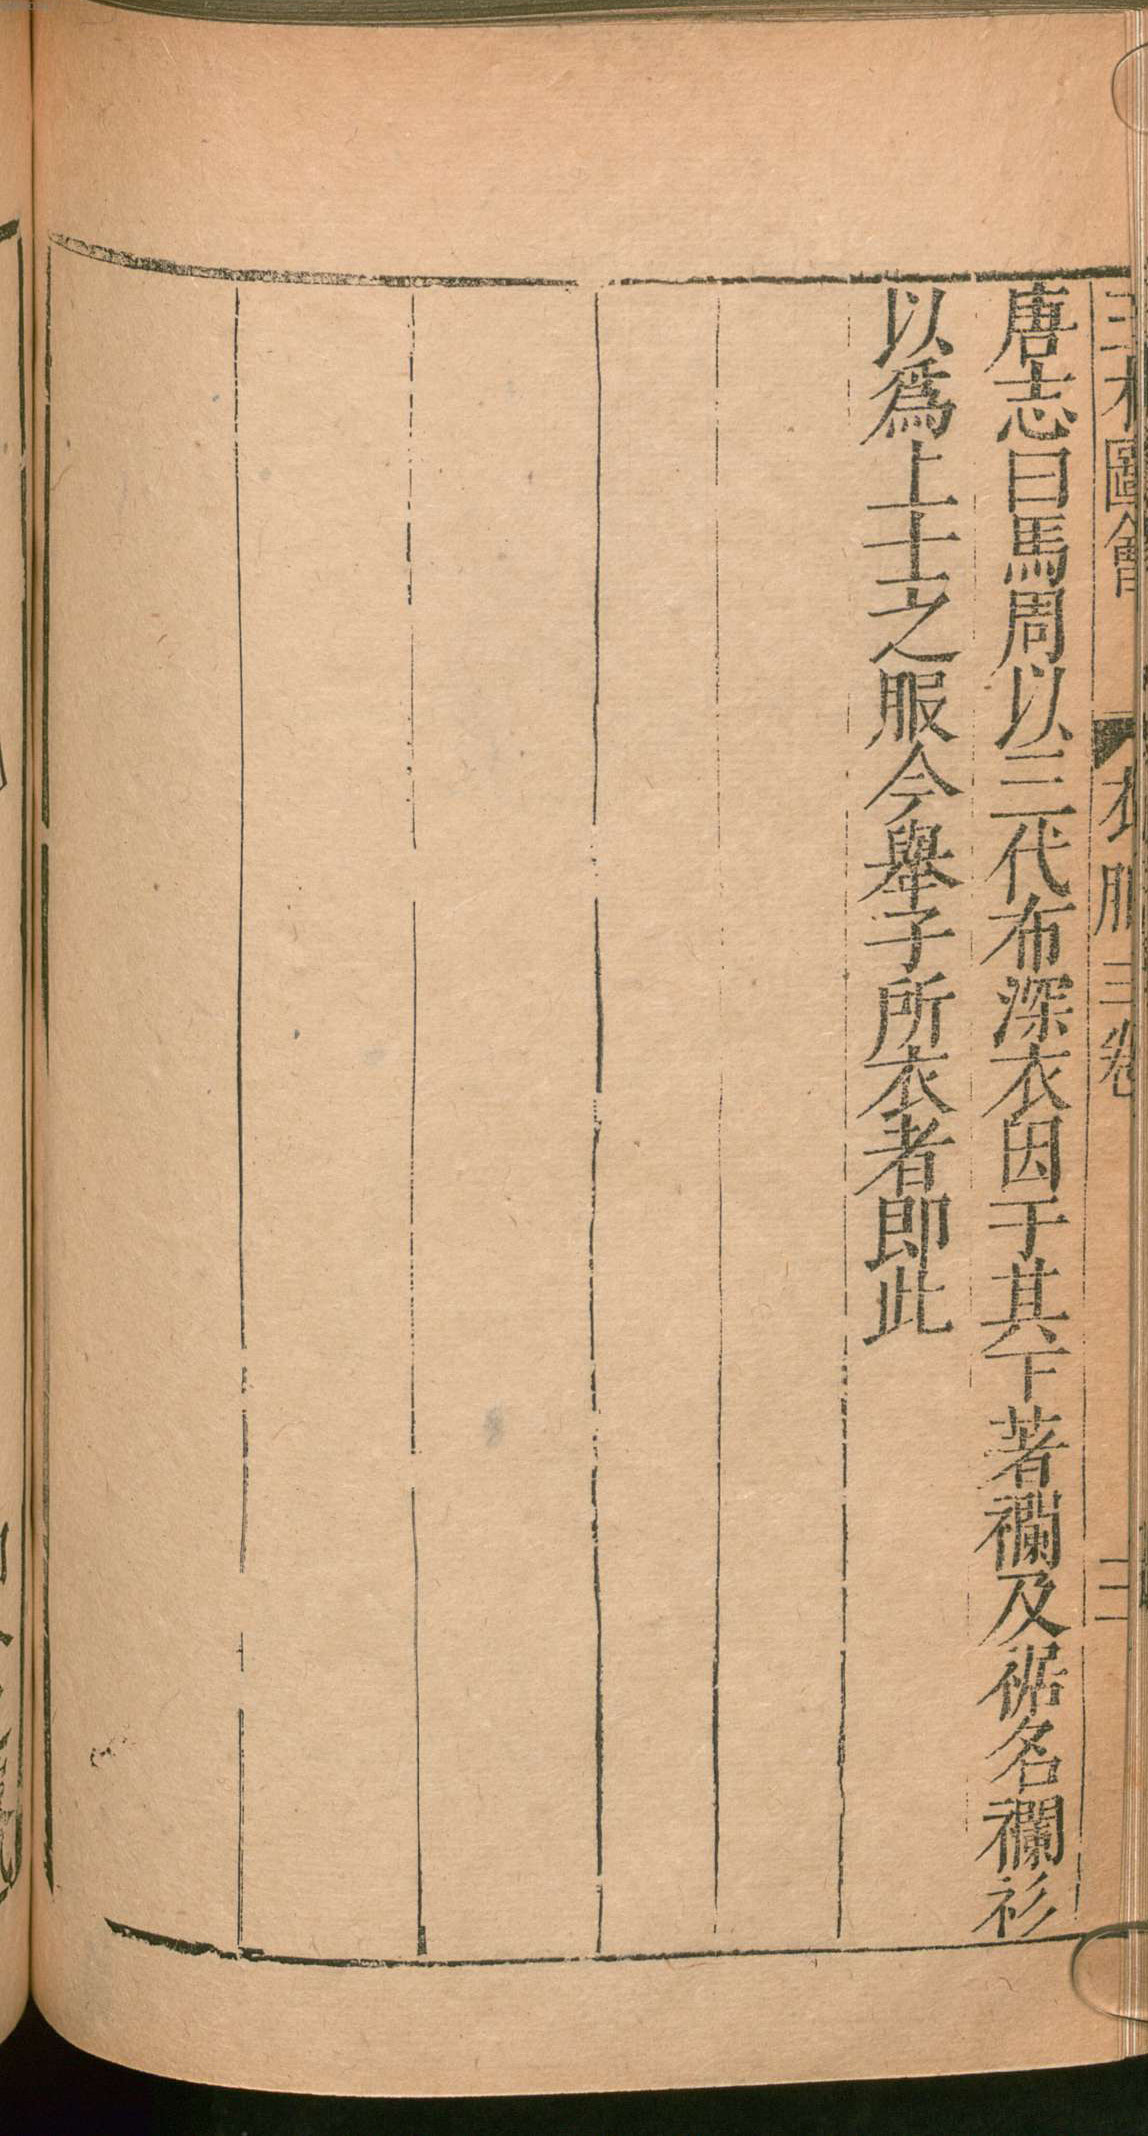 三才圖會 衣服三卷 三
唐志曰馬周以三代布深衣因于其下著襴及裾名襴衫
以爲上士之服今舉子所衣者即此